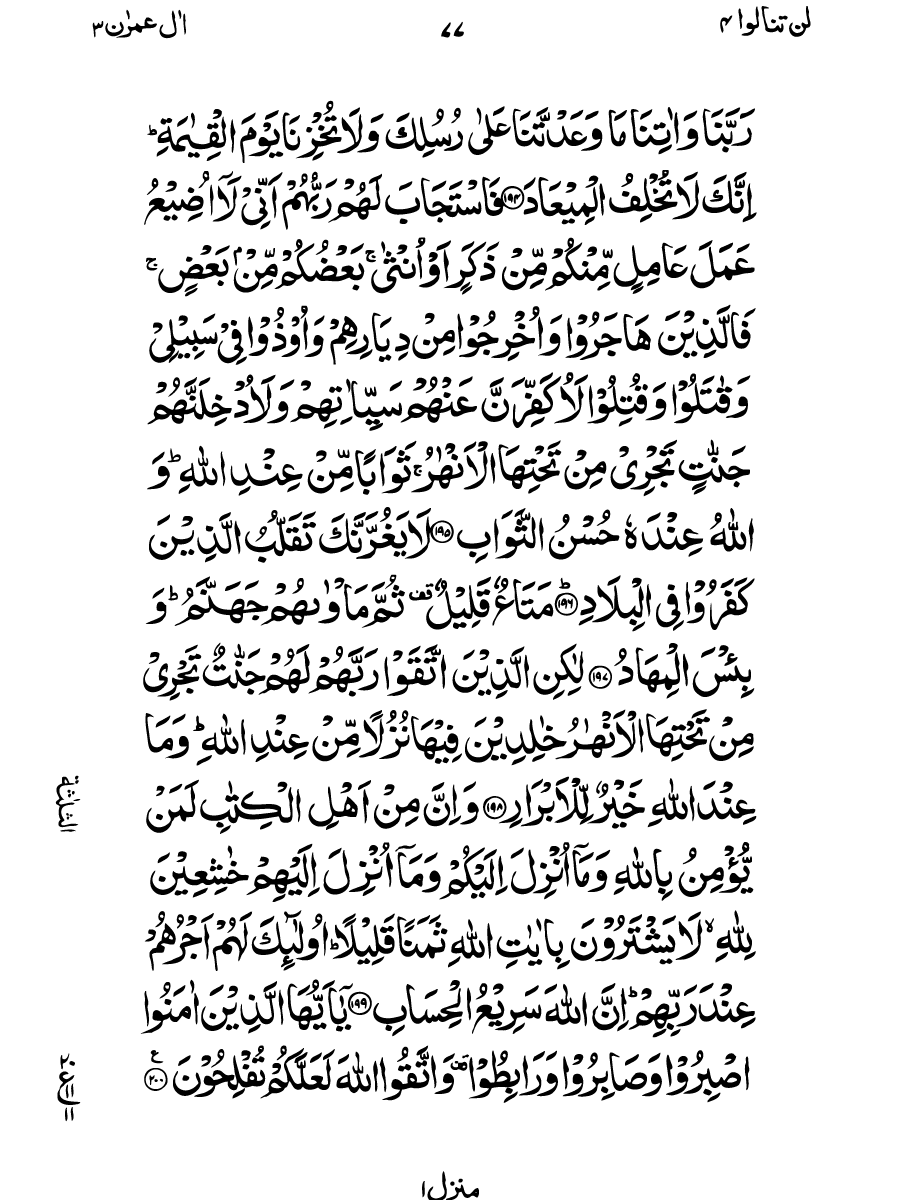 لن تنالوا ۴ ۷۷ اٰل عمرٰن ۳
رَبَّنَا وَاٰتِنَا مَا وَعَدْتَّنَا عَلٰى رُسُلِكَ وَلَا تُخْزِنَا يَوْمَ الْقِيٰمَةِ ؕ
اِنَّكَ لَا تُخْلِفُ الْمِيْعَادَ ﴿۱۹۴﴾ فَاسْتَجَابَ لَهُمْ رَبُّهُمْ اَنِّىْ لَاۤ اُضِيْعُ
عَمَلَ عَامِلٍ مِّنْكُمْ مِّنْ ذَكَرٍ اَوْ اُنْثٰى ۚ بَعْضُكُمْ مِّنْۢ بَعْضٍ ۚ
فَالَّذِيْنَ هَاجَرُوْا وَاُخْرِجُوْا مِنْ دِيَارِهِمْ وَاُوْذُوْا فِىْ سَبِيْلِىْ
وَقٰتَلُوْا وَقُتِلُوْا لَاُكَفِّرَنَّ عَنْهُمْ سَيِّاٰتِهِمْ وَلَاُدْخِلَنَّهُمْ
جَنّٰتٍ تَجْرِىْ مِنْ تَحْتِهَا الْاَنْهٰرُ ۚ ثَوَابًا مِّنْ عِنْدِ اللّٰهِ ؕ وَ
اللّٰهُ عِنْدَهٗ حُسْنُ الثَّوَابِ ﴿۱۹۵﴾ لَا يَغُرَّنَّكَ تَقَلُّبُ الَّذِيْنَ
كَفَرُوْا فِى الْبِلَادِ ﴿۱۹۶﴾ؕ مَتَاعٌ قَلِيْلٌ قف ثُمَّ مَاْوٰىهُمْ جَهَنَّمُ ؕ وَ
بِئْسَ الْمِهَادُ ﴿۱۹۷﴾ لٰكِنِ الَّذِيْنَ اتَّقَوْا رَبَّهُمْ لَهُمْ جَنّٰتٌ تَجْرِىْ
مِنْ تَحْتِهَا الْاَنْهٰرُ خٰلِدِيْنَ فِيْهَا نُزُلًا مِّنْ عِنْدِ اللّٰهِ ؕ وَمَا
عِنْدَ اللّٰهِ خَيْرٌ لِّلْاَبْرَارِ ﴿۱۹۸﴾ وَاِنَّ مِنْ اَهْلِ الْكِتٰبِ لَمَنْ
الثلٰثة
يُّؤْمِنُ بِاللّٰهِ وَمَاۤ اُنْزِلَ اِلَيْكُمْ وَمَاۤ اُنْزِلَ اِلَيْهِمْ خٰشِعِيْنَ
لِلّٰهِ ۙ لَا يَشْتَرُوْنَ بِاٰيٰتِ اللّٰهِ ثَمَنًا قَلِيْلًا ؕ اُولٰٓئِكَ لَهُمْ اَجْرُهُمْ
عِنْدَ رَبِّهِمْ ؕ اِنَّ اللّٰهَ سَرِيْعُ الْحِسَابِ ﴿۱۹۹﴾ يٰۤاَيُّهَا الَّذِيْنَ اٰمَنُوا
اصْبِرُوْا وَصَابِرُوْا وَرَابِطُوْا قف وَاتَّقُوا اللّٰهَ لَعَلَّكُمْ تُفْلِحُوْنَ ﴿۲۰۰﴾ع
منزل ۱